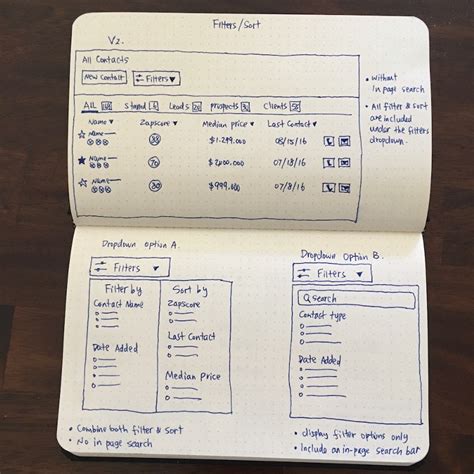 Filters/Sort
V2.
All Contacts
New Contact
Filters ▼
ALL Starred Leads prospects Clients
Name ▾ Zapscore ▾ Median price ▾ Last Contact ▾
Name 33 $1,299,000 08/15/16
Name 70 $7,200,000 07/18/16
Name 30 $999,000 07/8/16
• without
in page search
• All filter & sort
are included
under the filters
dropdown.
Dropdown Option A.
Filters ▼
Filter by
Contact Name
Date Added
Sort by
Zapscore
Last Contact
Median Price
• Combine both filter & sort
• No in page search
Dropdown Option B.
Filters ▼
Search
Contact type
Date Added
• display filter options only
• Include an in-page search bar